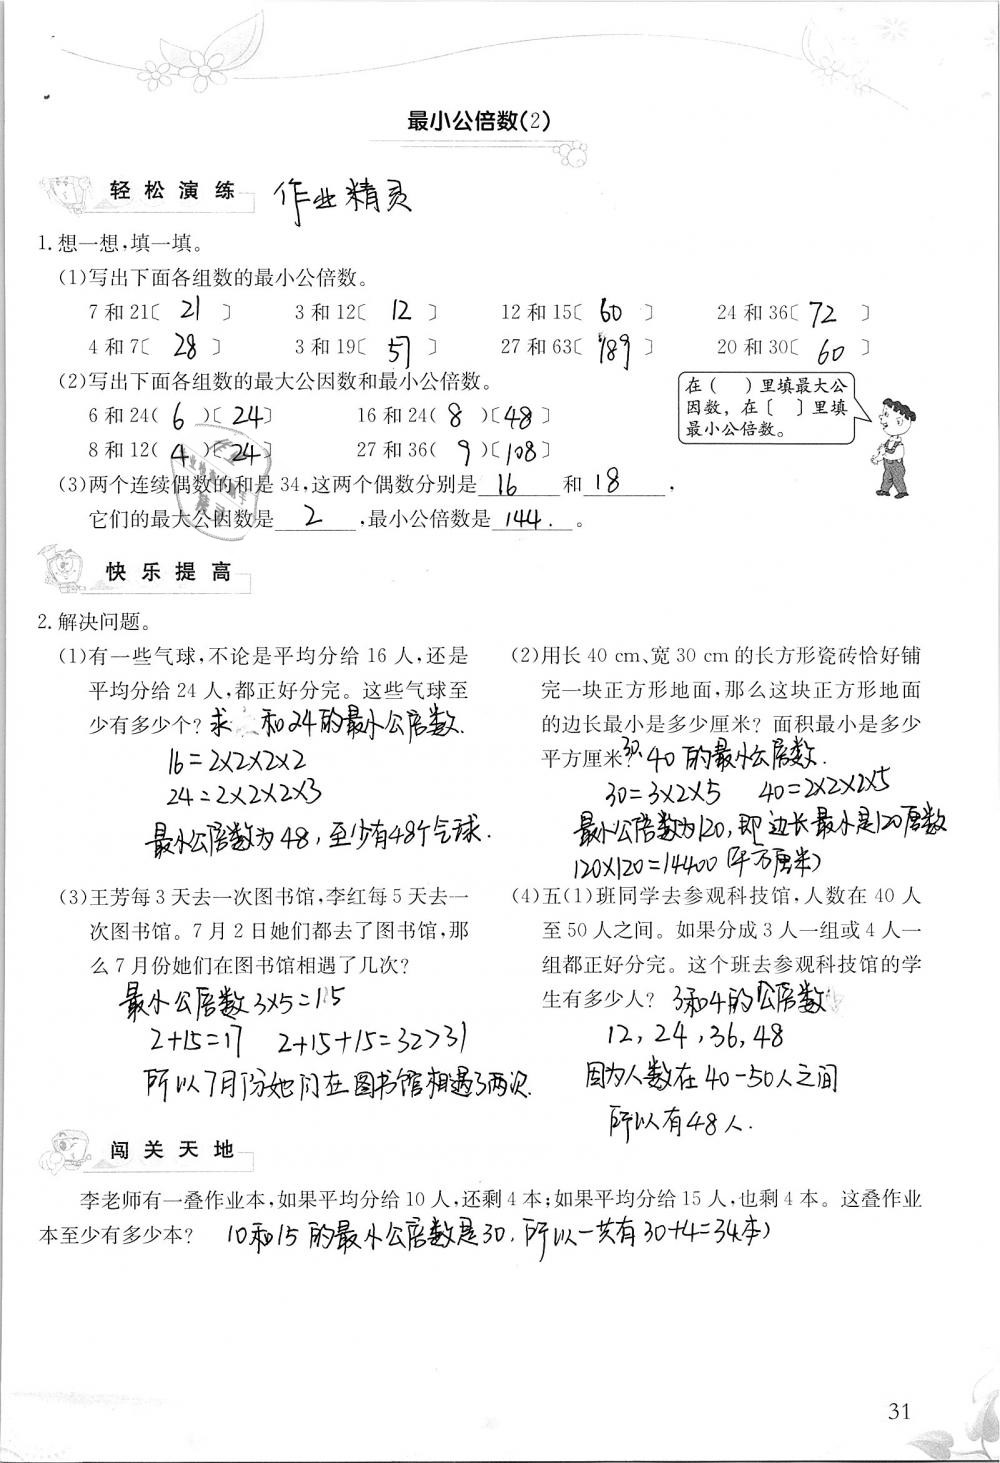 最小公倍数(2)
轻松演练 作业精灵
1. 想一想,填一填。
(1)写出下面各组数的最小公倍数。
7和21〔 21 〕 3和12〔 12 〕 12和15〔 60 〕 24和36〔 72 〕
4和7〔 28 〕 3和19〔 57 〕 27和63〔 189 〕 20和30〔 60 〕
(2)写出下面各组数的最大公因数和最小公倍数。
6和24( 6 )〔 24 〕 16和24( 8 )〔 48 〕
8和12( 4 )〔 24 〕 27和36( 9 )〔 108 〕
在( )里填最大公
因数，在〔 〕里填
最小公倍数。
(3)两个连续偶数的和是34,这两个偶数分别是 16 和 18 ,
它们的最大公因数是 2 ,最小公倍数是 144. 。
快乐提高
2. 解决问题。
(1)有一些气球,不论是平均分给16人,还是
平均分给24人,都正好分完。这些气球至
少有多少个? 求 和24的最小公倍数.
16=2×2×2×2
24=2×2×2×3
最小公倍数为48,至少有48个气球.
(2)用长40 cm、宽30 cm的长方形瓷砖恰好铺
完一块正方形地面,那么这块正方形地面
的边长最小是多少厘米? 面积最小是多少
平方厘米? 30. 40的最小公倍数.
30=3×2×5 40=2×2×2×5
最小公倍数为120,即边长最小是120厘数
120×120=14400(平方厘米)
(3)王芳每3天去一次图书馆,李红每5天去一
次图书馆。7月2日她们都去了图书馆,那
么7月份她们在图书馆相遇了几次?
最小公倍数3×5=15
2+15=17 2+15+15=32>31
所以7月份她们在图书馆相遇了两次.
(4)五(1)班同学去参观科技馆,人数在40人
至50人之间。如果分成3人一组或4人一
组都正好分完。这个班去参观科技馆的学
生有多少人? 3和4的公倍数
12,24,36,48
因为人数在40-50人之间
所以有48人.
闯关天地
李老师有一叠作业本,如果平均分给10人,还剩4本;如果平均分给15人,也剩4本。这叠作业
本至少有多少本? 10和15的最小公倍数是30.所以一共有30+4=34本)
31